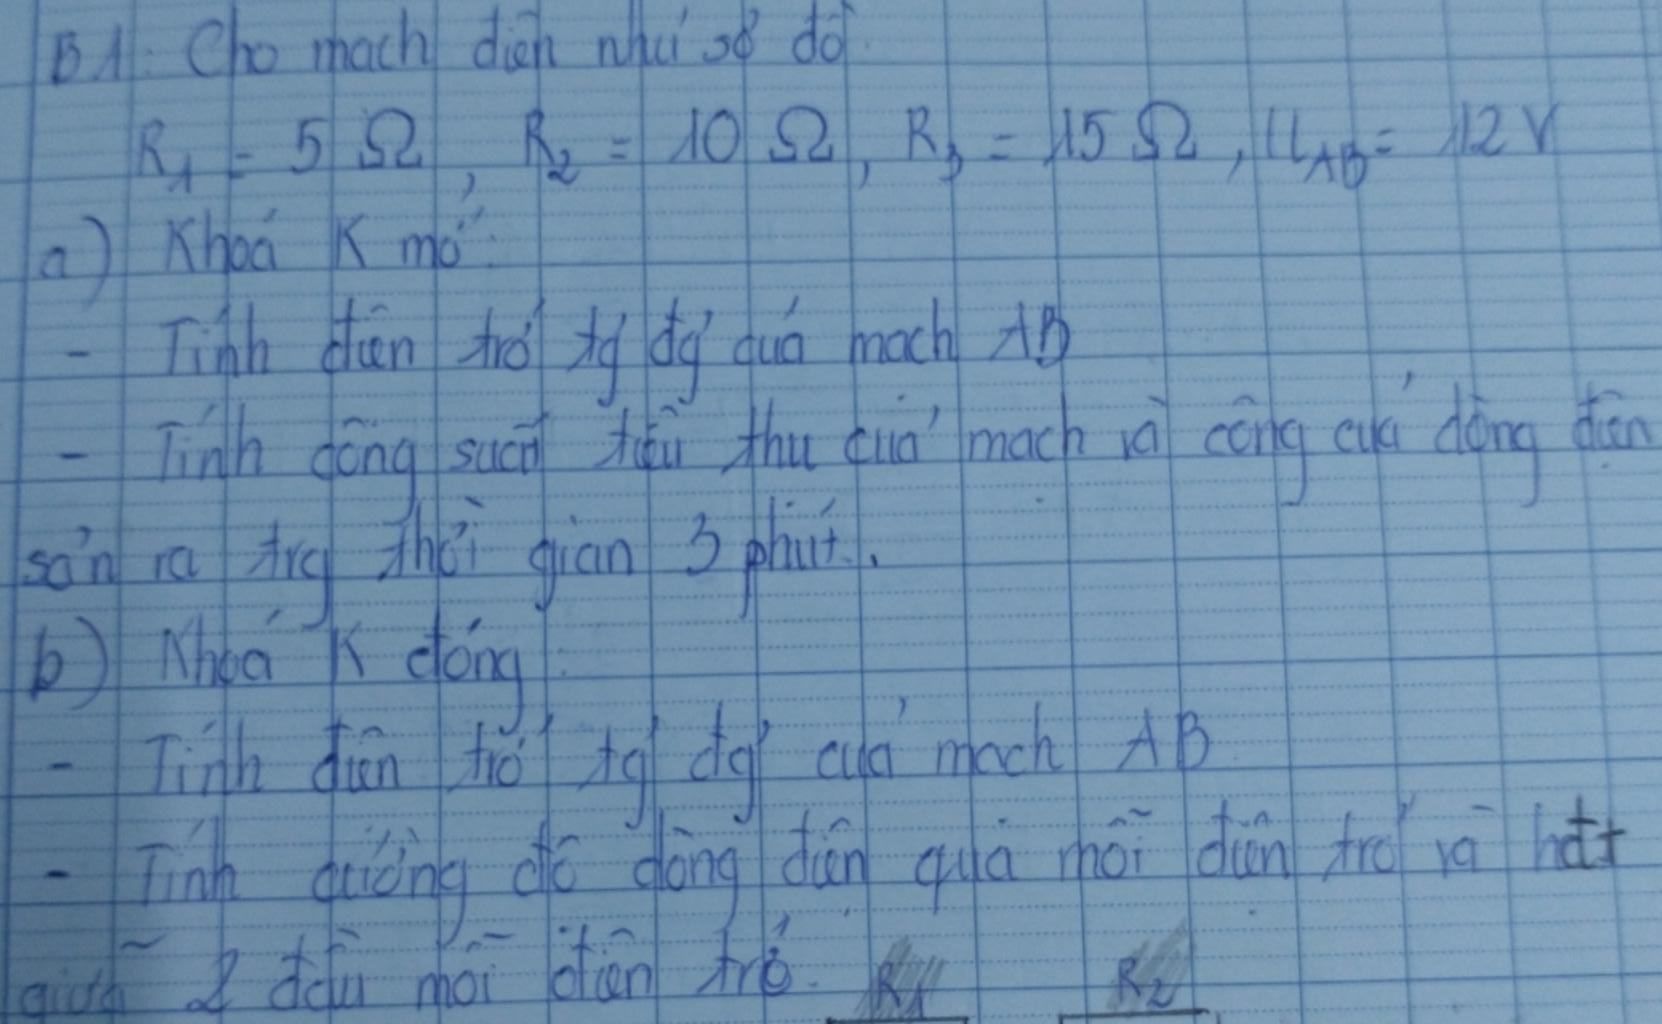 B1. Cho mạch điện như sơ đồ.
R₁ = 5 Ω, R₂ = 10 Ω, R₃ = 15 Ω, U_AB = 12 V
a) Khoá K mở:
- Tính điện trở tg đg của mạch AB
- Tính công suất tiêu thụ của mạch và công của dòng điện
sản ra trg thời gian 3 phút.
b) Khoá K đóng:
- Tính điện trở tg đg của mạch AB
- Tính cường độ dòng điện qua mỗi điện trở và hđt
giữa 2 đầu mỗi điện trở.
R₁ R₂